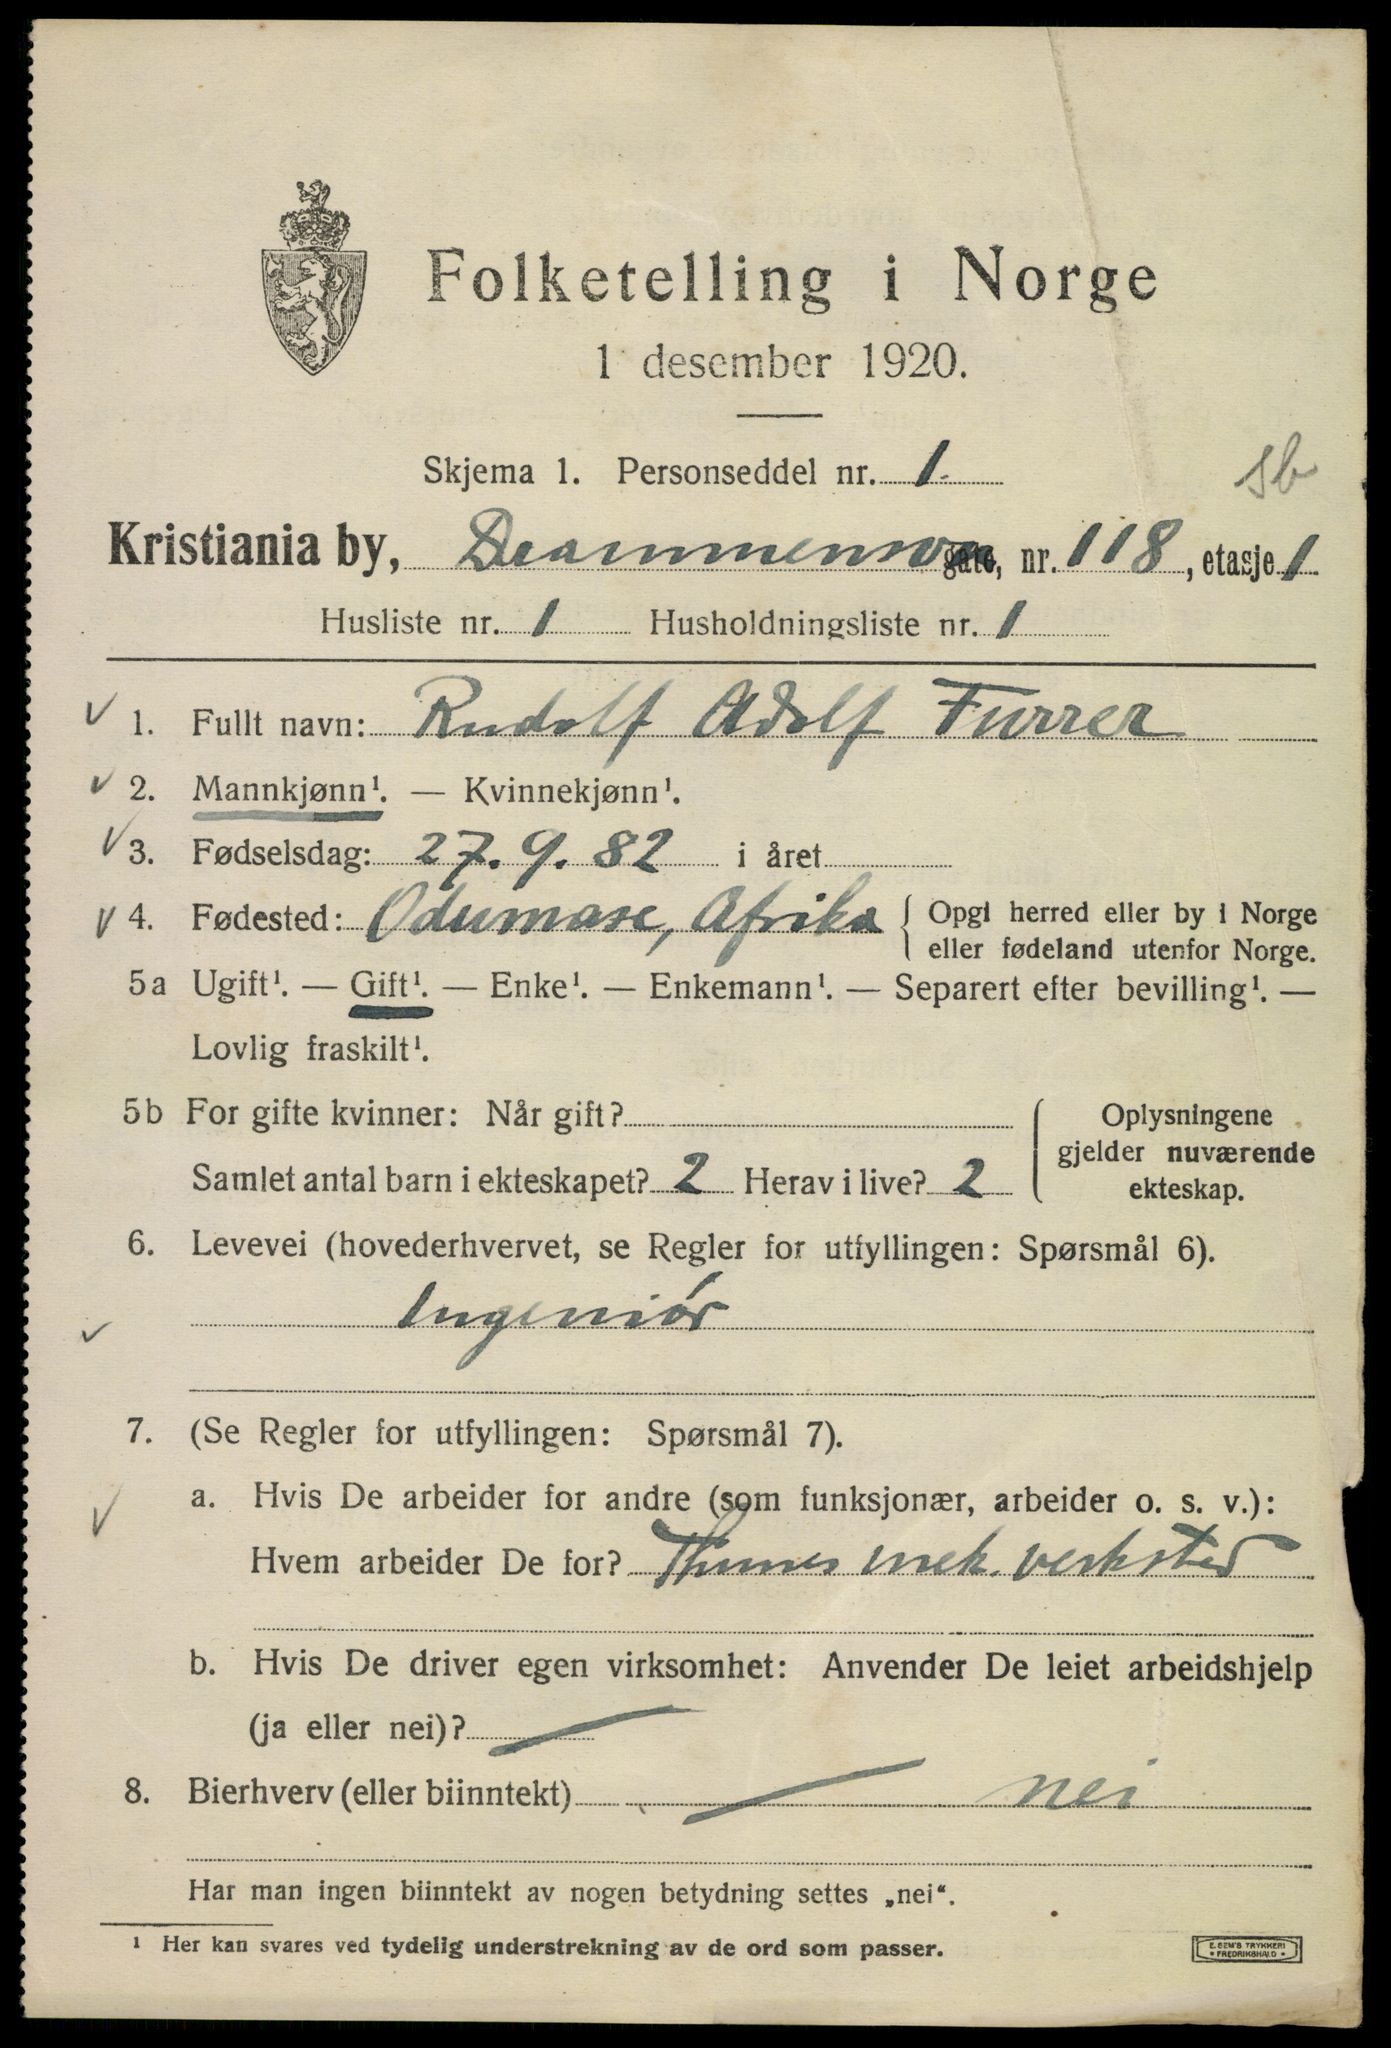 Folketelling i Norge
1 desember 1920.
Skjema 1. Personseddel nr. 1.
sb
Kristiania by, Drammensvei gate, nr. 118, etasje 1
Husliste nr. 1 Husholdningsliste nr. 1
1. Fullt navn: Rudolf Adolf Furrer
2. Mannkjønn¹. — Kvinnekjønn¹.
3. Fødselsdag: 27. 9. 82 i året
4. Fødested: Odumase, Afrika { Opgi herred eller by i Norge
eller fødeland utenfor Norge.
5a Ugift¹. — Gift¹. — Enke¹. — Enkemann¹. — Separert efter bevilling¹. —
Lovlig fraskilt¹.
5b For gifte kvinner: Når gift?
Samlet antal barn i ekteskapet? 2 Herav i live? 2
Oplysningene
gjelder nuværende
ekteskap.
6. Levevei (hovederhvervet, se Regler for utfyllingen: Spørsmål 6).
Ingeniór
7. (Se Regler for utfyllingen: Spørsmål 7).
a. Hvis De arbeider for andre (som funksjonær, arbeider o. s. v.):
Hvem arbeider De for? Thunes mek. verksted
b. Hvis De driver egen virksomhet: Anvender De leiet arbeidshjelp
(ja eller nei)? —
8. Bierhverv (eller biinntekt) — nei
Har man ingen biinntekt av nogen betydning settes „nei“.
¹ Her kan svares ved tydelig understrekning av de ord som passer.
E. SEM'S TRYKKERI
* FREDRIKSHALD *